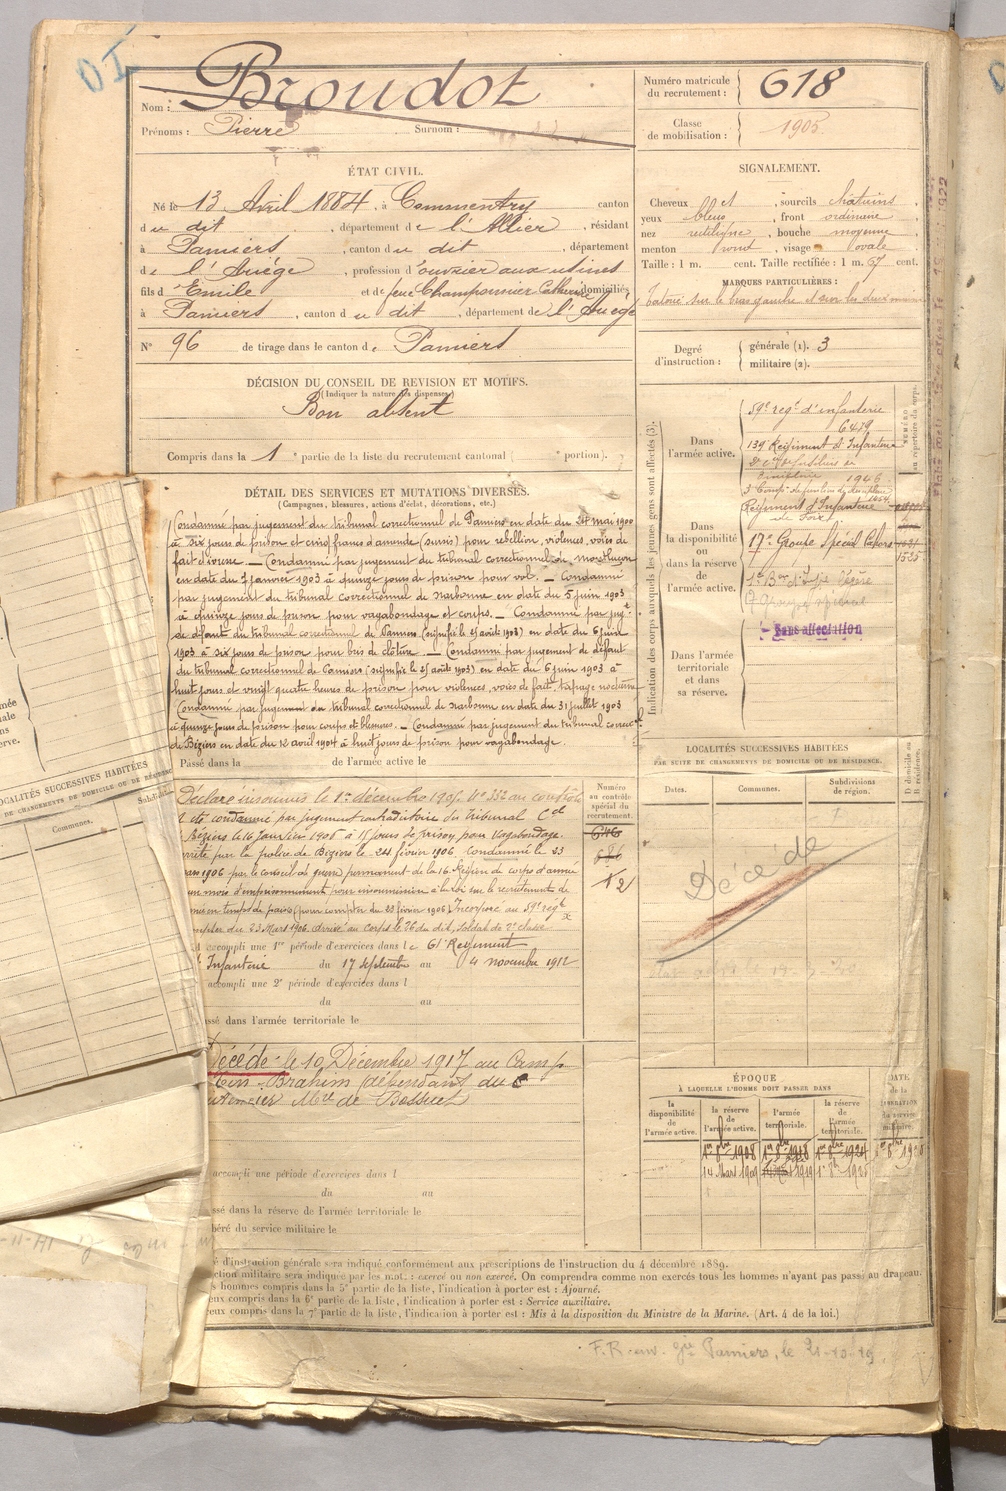 Nom : Broudot
Prénoms : Pierre Surnom :
Numéro matricule du recrutement : 618
Classe de mobilisation : 1905
ÉTAT CIVIL.
Né le 13 Avril 1884, à Commentry canton
du dit, département de l'Allier, résidant
à Pamiers, canton du dit, département
de l'Ariège, profession d'ouvrier aux usines
fils d'Emile et de feue Champomier Catherine domiciliés
à Pamiers, canton du dit, département de l'Ariège
N° 96 de tirage dans le canton de Pamiers
SIGNALEMENT.
Cheveux et, sourcils châtains
yeux bleus, front ordinaire
nez rectiligne, bouche moyenne
menton rond, visage ovale
Taille : 1 m. cent. Taille rectifiée : 1 m. 67 cent.
MARQUES PARTICULIÈRES :
Tatoué sur le bras gauche et sur les deux mains
Degré d'instruction : générale (1). 3
militaire (2).
DÉCISION DU CONSEIL DE REVISION ET MOTIFS.
(Indiquer la nature des dispenses)
Bon absent
Compris dans la 1e partie de la liste du recrutement cantonal ( portion).
DÉTAIL DES SERVICES ET MUTATIONS DIVERSES.
(Campagnes, blessures, actions d'éclat, décorations, etc.)
Condamné par jugement du tribunal correctionnel de Pamiers en date du 24 mai 1900
à six jours de prison et cinq francs d'amende (sursis) pour rebellion, violences, voies de
fait, ivresse. — Condamné par jugement du tribunal correctionnel de Montluçon
en date du 7 janvier 1903 à quinze jours de prison pour vol. — Condamné
par jugement du tribunal correctionnel de Narbonne en date du 5 juin 1903
à quinze jours de prison pour vagabondage et corps. — Condamné par jugt
de défaut du tribunal correctionnel de Pamiers (signifié le 25 août 1903) en date du 6 juin
1903 à six jours de prison pour bris de clôture. — Condamné par jugement de défaut
du tribunal correctionnel de Pamiers (signifié le 25 août 1903) en date du 6 juin 1903 à
huit jours et vingt quatre heures de prison pour violences, voies de fait, tapage nocturne
Condamné par jugement du tribunal correctionnel de Narbonne en date du 31 juillet 1903
à quinze jours de prison pour coups et blessures. — Condamné par jugement du tribunal correct
de Béziers en date du 12 avril 1904 à huit jours de prison pour vagabondage.
Passé dans la de l'armée active le
Déclaré insoumis le 1er décembre 1905. N° 332 au contrôle
A été condamné par jugement contradictoire du tribunal Cel
Béziers le 16 Janvier 1906 à 15 jours de prison pour Vagabondage.
arrêté par la police de Béziers le 24 février 1906. Condamné le 23
mars 1906 par le conseil de guerre permanent de la 16e Région de corps d'armée
un mois d'emprisonnement pour insoumission à la loi sur le recrutement de
armée en temps de paix (pour compter du 23 février 1906). Incorporé au 59e regt
compter du 23 Mars 1906, arrivé au corps le 26 du dit, Soldat de 2e classe
accompli une 1re période d'exercices dans le 61e Régiment
Infanterie du 17 septembre au 4 novembre 1912
accompli une 2e période d'exercices dans l
du au
ssé dans l'armée territoriale le
Décédé le 10 Décembre 1917 au Camp
Brahim dépendant du
de Bossuet
accompli une période d'exercices dans l
du au
ssé dans la réserve de l'armée territoriale le
béré du service militaire le
Numéro au contrôle spécial du recrutement.
646
686
12
Indication des corps auxquels les jeunes gens sont affectés (3).
Dans l'armée active.
59e regt d'infanterie
6479
139e Régiment d'Infanterie
1946
1654
Dans la disponibilité ou dans la réserve de l'armée active.
Régiment d'Infanterie
de Foix
17e Groupe Spécial Cahors
1535
Sans affectation
Dans l'armée territoriale et dans sa réserve.
NUMÉRO au répertoire du corps.
LOCALITÉS SUCCESSIVES HABITÉES
PAR SUITE DE CHANGEMENTS DE DOMICILE OU DE RÉSIDENCE.
Dates. Communes. Subdivisions de région. D domicile ou R résidence.
Décédé
ÉPOQUE
À LAQUELLE L'HOMME DOIT PASSER DANS
la disponibilité de l'armée active.
la réserve de l'armée active.
l'armée territoriale.
la réserve de l'armée territoriale.
DATE de la LIBÉRATION du service militaire.
1er 8bre 1908 1er 8bre 1918 1er 8bre 1924
14 Mars 1909 1919 1er 8bre 1925
é d'instruction générale sera indiqué conformément aux prescriptions de l'instruction du 4 décembre 1889.
ction militaire sera indiquée par les mat. : exercé ou non exercé. On comprendra comme non exercés tous les hommes n'ayant pas passé au drapeau.
s hommes compris dans la 5e partie de la liste, l'indication à porter est : Ajourné.
eux compris dans la 6e partie de la liste, l'indication à porter est : Service auxiliaire.
eux compris dans la 7e partie de la liste, l'indication à porter est : Mis à la disposition du Ministre de la Marine. (Art. 4 de la loi.)
F.R. env. gie Pamiers, le 21-10-19
LOCALITÉS SUCCESSIVES HABITÉES
DE CHANGEMENTS DE DOMICILE OU DE
Communes.